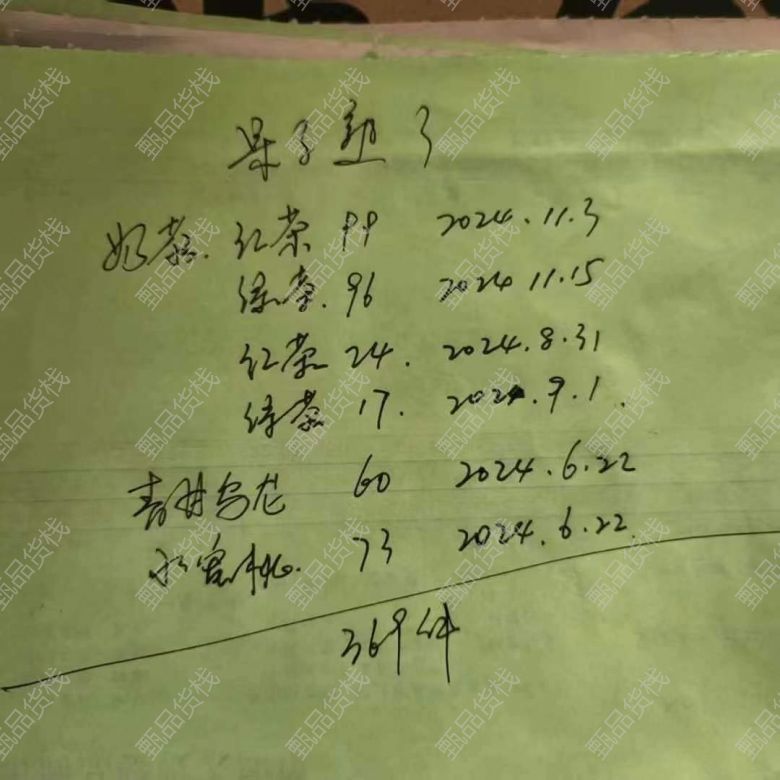 果子熟了
奶茶. 红茶 99 2024.11.3
绿茶. 96 2024 11.15
红茶 24. 2024.8.31
绿茶 17. 2024.9.1.
青柑乌龙 60 2024.6.22
水蜜桃. 73 2024.6.22
369件
甄品货栈